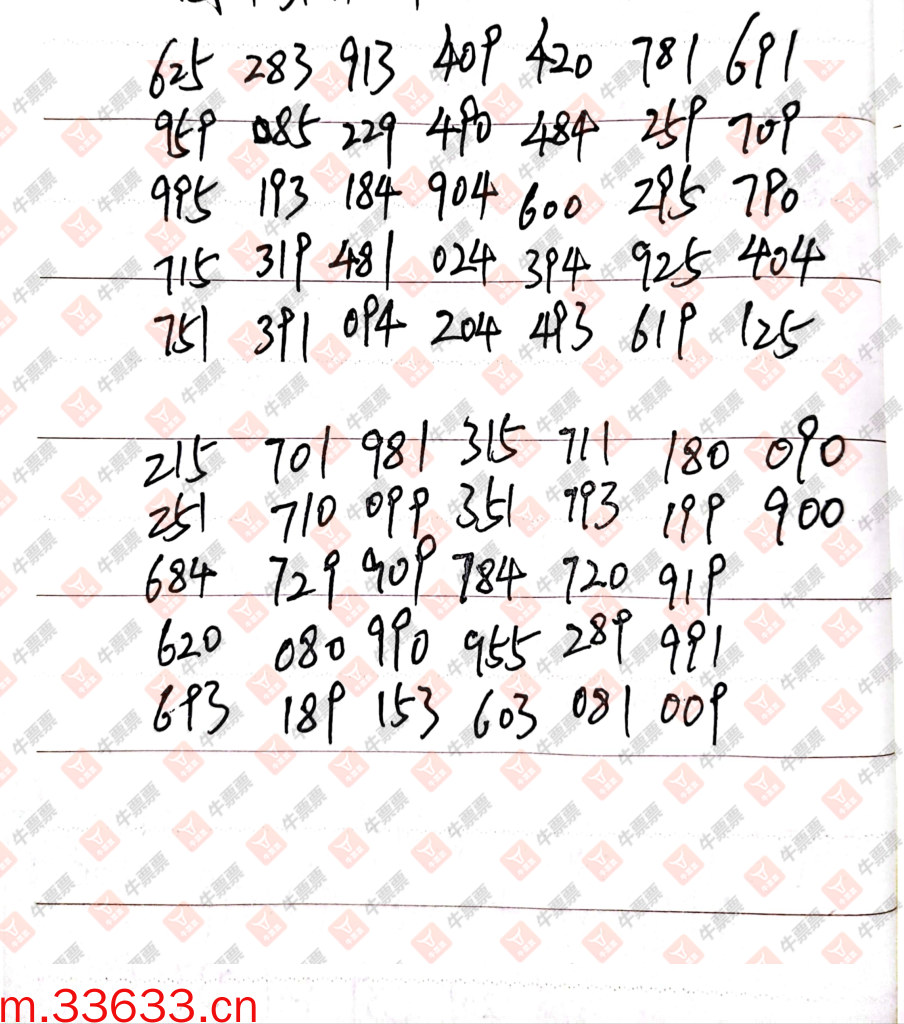 625 283 913 409 420 781 691
959 085 229 490 484 259 709
995 193 184 904 600 295 790
715 319 481 024 394 925 404
751 391 094 204 493 619 125
215 701 981 315 711 180 090
251 710 099 351 793 199 900
684 729 909 784 720 919
620 080 990 955 289 991
693 189 153 603 081 009
牛票票
m.33633.cn